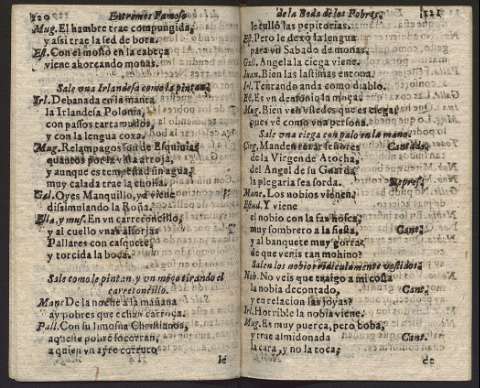 220 Entremes Famoso
Mug. El hambre trae compungida,
y assi trae la sed de bota.
Est. Con el moño en la cabeça
viene ahorcando monas.
Sale vna Irlandesa como la pintan.
Irl. Debanada en la manta
la Irlandesa Polonia,
con passos tartamudos,
y con la lengua coxa.
Mag. Relampagos son de Esquiuias
quantos por la vista arroja,
y aunque es tempestad sin agua,
muy calada trae la choña.
Gal. Oyes Manquillo, ya viene
disimulando la Roña.
Ella, y mus. En vn carretoncillo,
y al cuello vnas alforjas
Pallares con casquete,
y torcida la boca.
Sale como le pintan, y vn moço tirando el
carretoncillo.
Man. De la noche à la mañana
ay pobres que echan carroça.
Pall. Con su limosna Christianos,
aqueste pobre socorran,
a quien vn ayre corruto
le
de la Boda de los Pobres. 221
le tulló las pepitorias.
Est. Pero le dexó la lengua
para vn Sabado de monas.
Gal. Angela la ciega viene.
Juan. Bien las lastimas entona.
Irl. Tentando anda como diablo.
Est. Es vn demonio la moça.
Mag. Bien ven vstedes que es ciega,
pues vé como vna persona.
Sale vna ciega con palo en la mano.
Cieg. Manden rezar señores Cantado.
de la Virgen de Atocha,
del Angel de su Guarda
la plegaria sea sorda. Repres.
Manc. Los nobios vienen.
Y viene
el nobio con la faz hosca,
muy sombrero a la fiesta, Cant.
y al banquete muy gorra
de que venis tan mohino?
Salen los nobios ridiculamente vestidos.
Nob. No veis que traigo a mi costa
la nobia de contado, Cant.
y en relacion las joyas?
Irl. Horrible la nobia viene.
Mag. Es muy puerca, pero boba,
y trae almidonada Cant.
la cara, y no la toca,
de